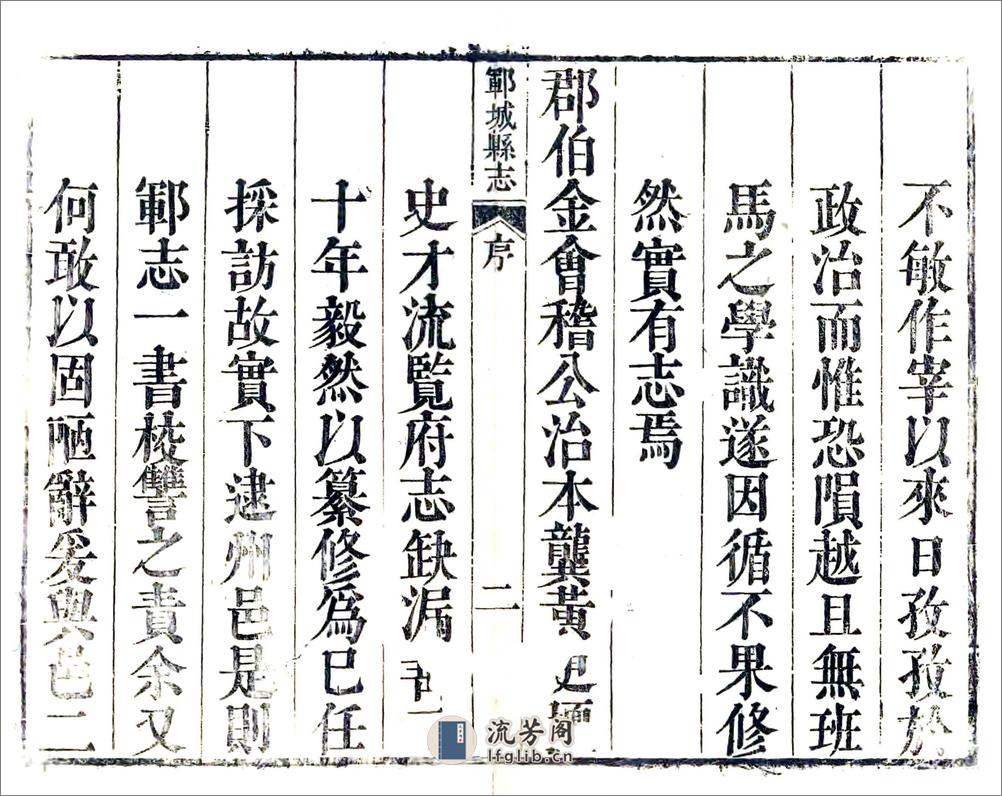 不敏作宰以來日孜孜於
政治而惟恐隕越且無班
馬之學識遂因循不果修
然實有志焉
郡伯金會稽公治本龔黃
鄆城縣志
序
二
史才流覽府志缺漏
十年毅然以纂修爲已任
採訪故實下逮州邑是則
鄆志一書校讐之責余又
何敢以固陋辭爰與邑二
流芳阁
lfglib.cn